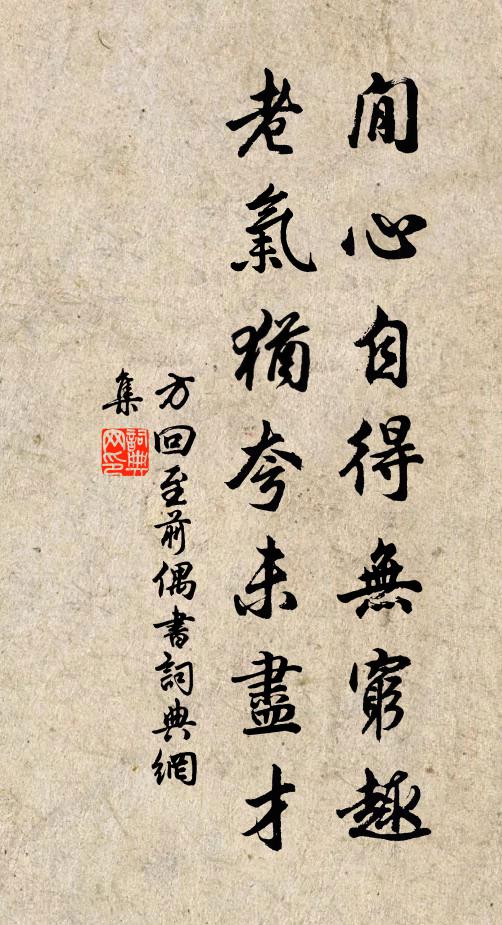 閒心自得無窮趣
老氣猶夸未盡才
方回至前偶書詞典網
集
詞典
网印